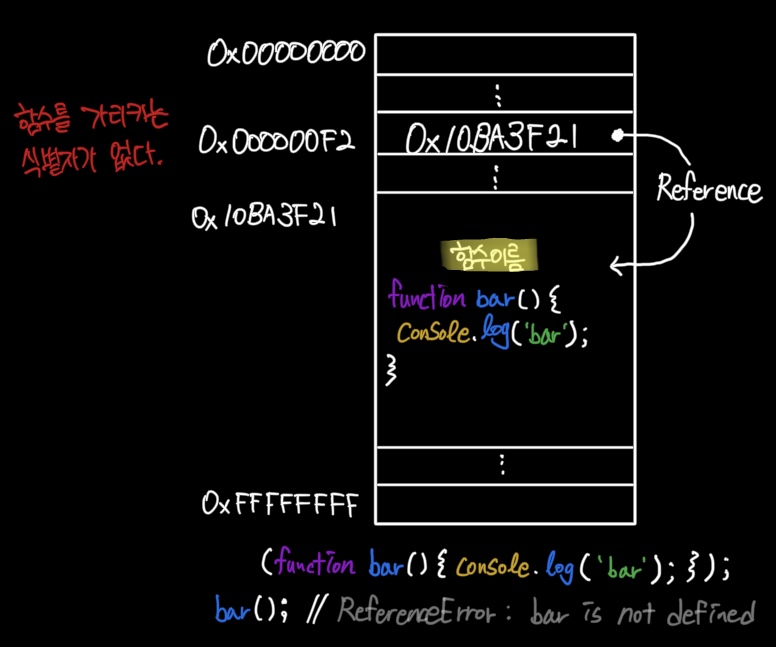 0x00000000
⋮
함수를 가리키는
식별자가 없다.
0x000000F2
0x10BA3F21
⋮
Reference
0x10BA3F21
함수이름
function bar() {
console.log('bar');
}
⋮
0xFFFFFFFF
(function bar() { console.log('bar'); });
bar(); // ReferenceError: bar is not defined